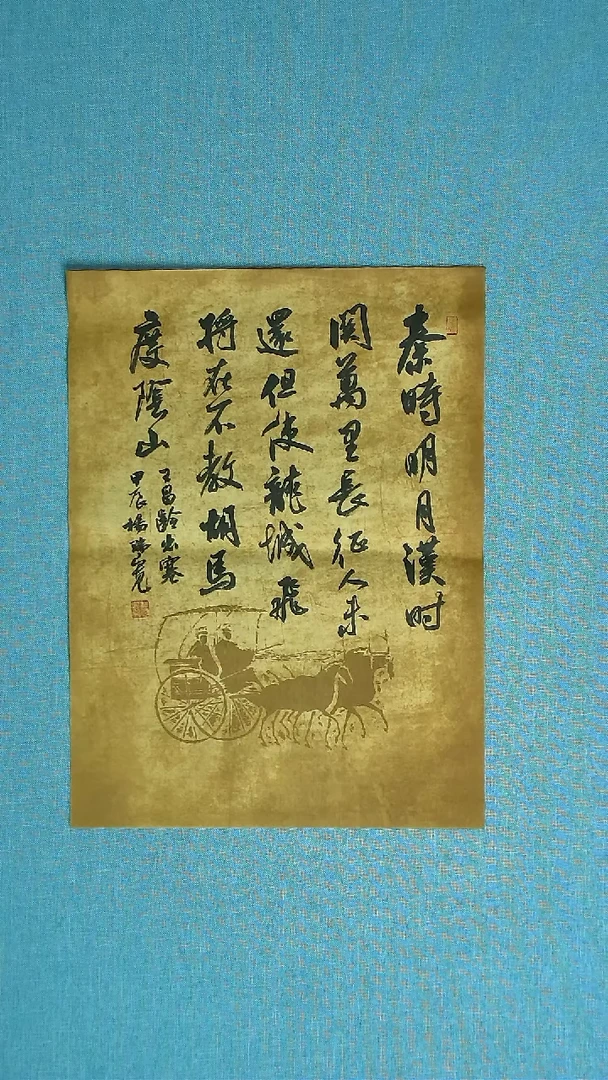 秦時明月漢时
関萬里長征人未
還但使龍城飛
将在不教胡馬
度陰山
王昌龄出塞
甲辰楊瑞寛